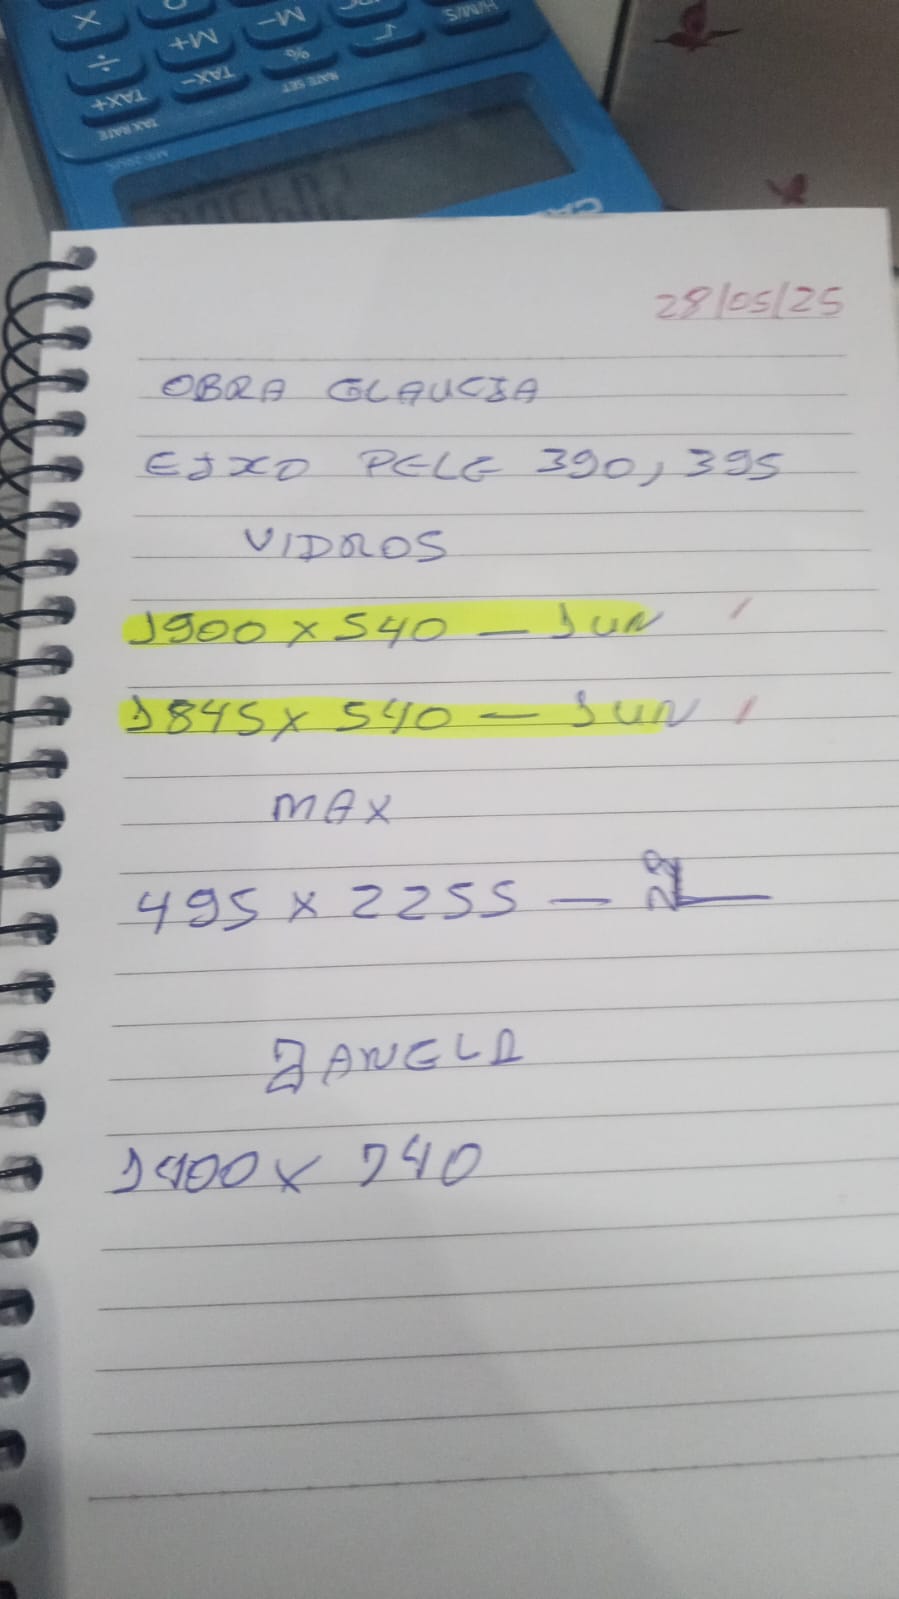 H/M/S
M-
M+
X
√
%
÷
RATE SET
TAX-
TAX+
TAX RATE
CA
28/05/25
OBRA GLAUCIA
EIXO PELE 390, 395
VIDROS
1900 X 540 - 1 UN
1845 X 540 - 1 UN
MAX
495 X 2255 -
JANELA
1400 X 740